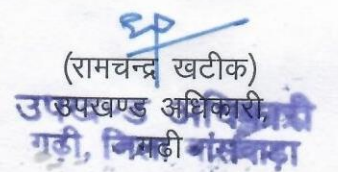 (रामचन्द्र खटीक)
उपखण्ड अधिकारी,
गढ़ी
उपखण्ड अधिकारी
गढ़ी, जिला बांसवाड़ा